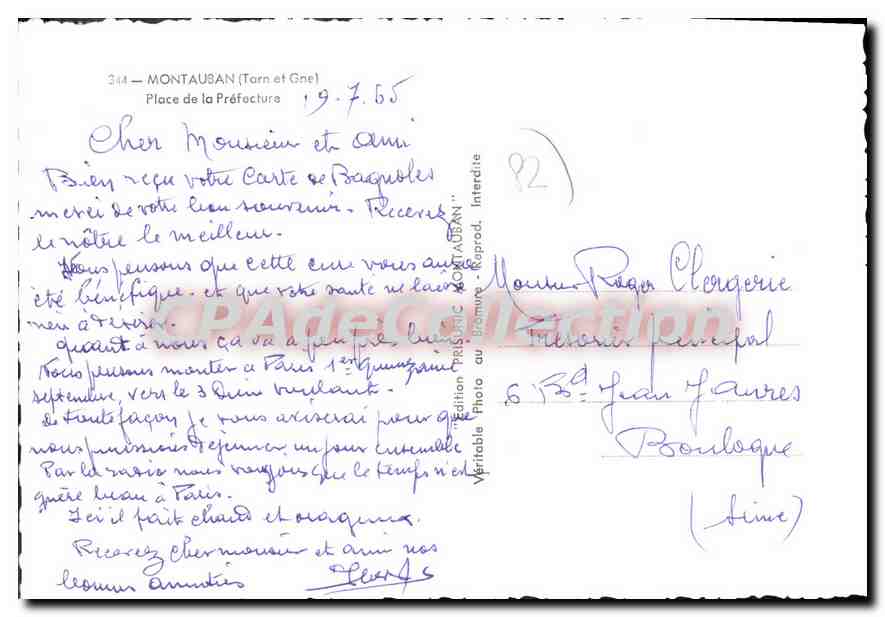 344 — MONTAUBAN (Tarn et Gne)
Place de la Préfecture
19.7.65
Cher Monsieur et ami
Bien reçu votre Carte de Bagnoles
merci de votre bon souvenir. Recevez
le nôtre le meilleur.
Nous pensons que cette cure vous aura
été bénéfique et que votre santé ne laisse
rien à désirer.
quant à nous ça va à peu près bien.
Nous pensons monter à Paris 1ère quinzaine
septembre, vers le 3
de toute façon je vous aviserai pour que
nous puissions déjeuner un jour ensemble
Par la radio nous voyons que le temps n'est
guère beau à Paris.
Ici il fait chaud et orageux.
Recevez cher monsieur et ami nos
bonnes amitiés
"Edition "PRISUNIC MONTAUBAN"
Véritable Photo au Bromure - Reprod. Interdite
82)
Monsieur Roger Clergerie
Trésorier principal
6 Bd Jean Jaures
Boulogne
(Seine)
CPAdeCollection